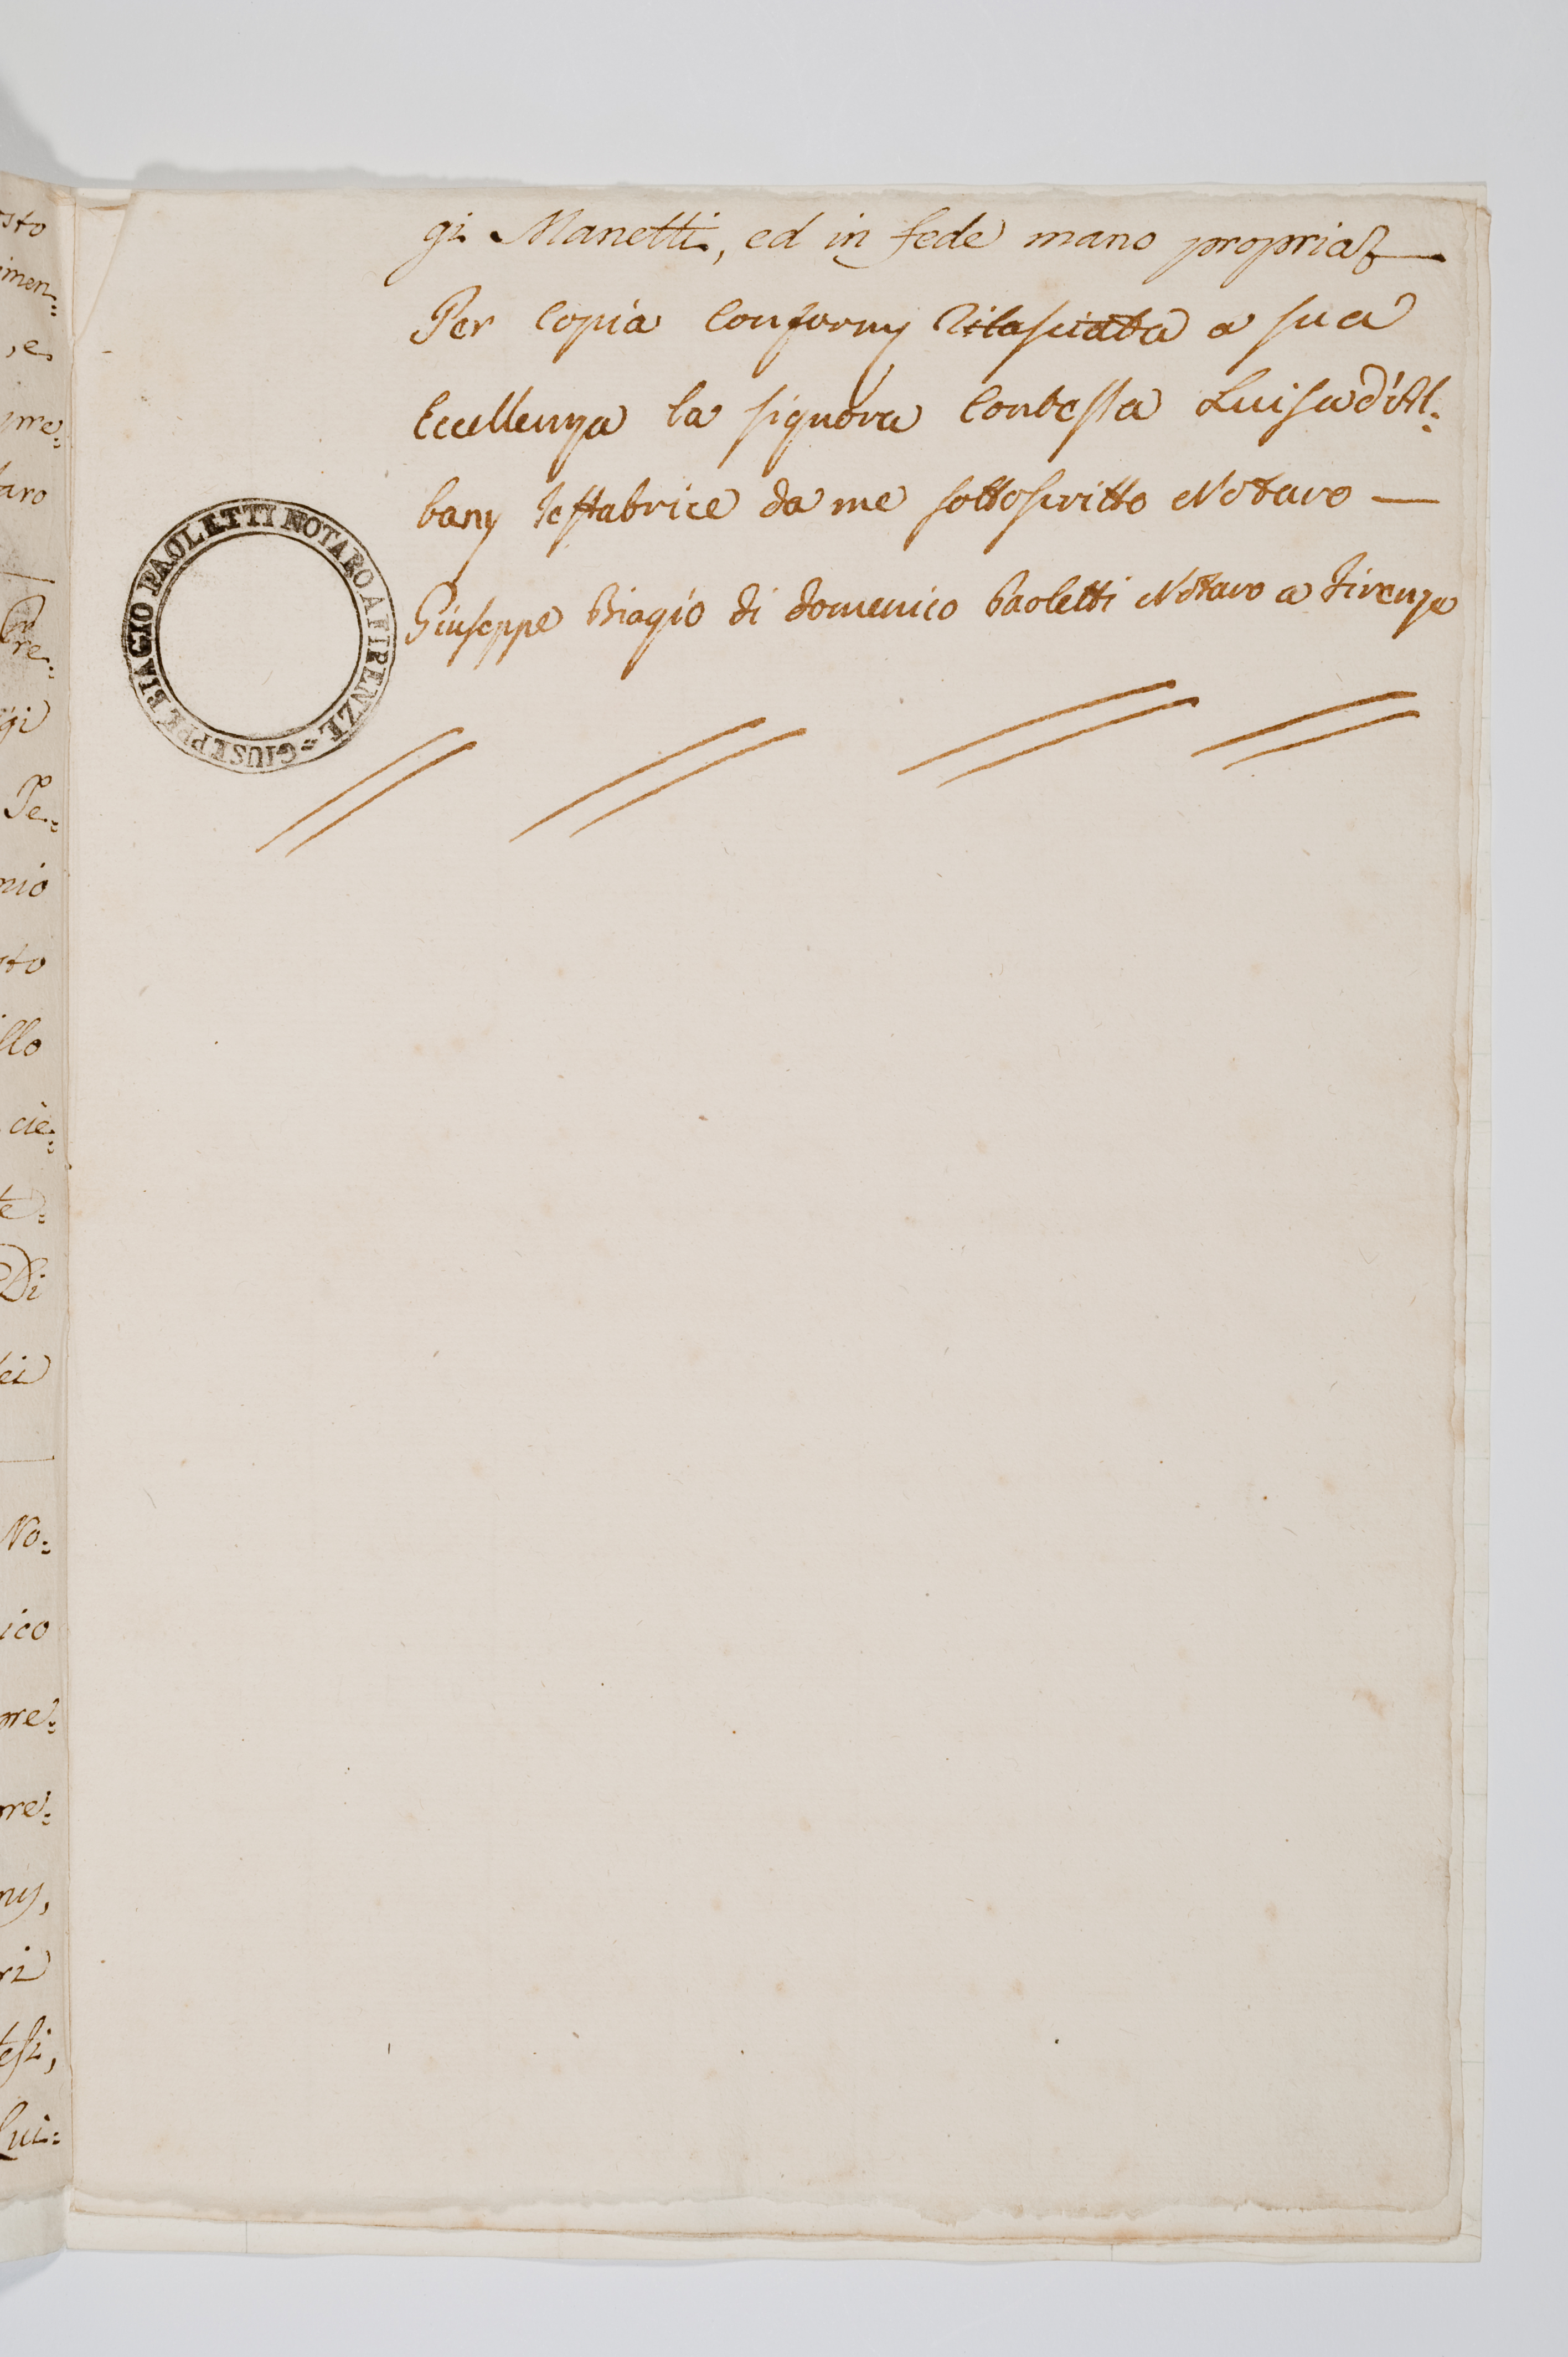 gi Manetti, ed in fede mano propria
Per Copia Conforme Rilasciata a sua
Eccellenza la Signora Contessa Luisa d'Al:
bany Testatrice da me sottoscritto Notaro —
Giuseppe Biagio di Domenico Paoletti Notaro a Firenze
GIUSEPPE BIAGIO PAOLETTI NOTARO A FIRENZE =
sto
imen:
,e
pre:
taro
Pre:
gi
Te:
nio
sto
llo
cie:
te:
Di
lei
No:
ico
pre:
pre:
ny,
ri
testi,
Lui: